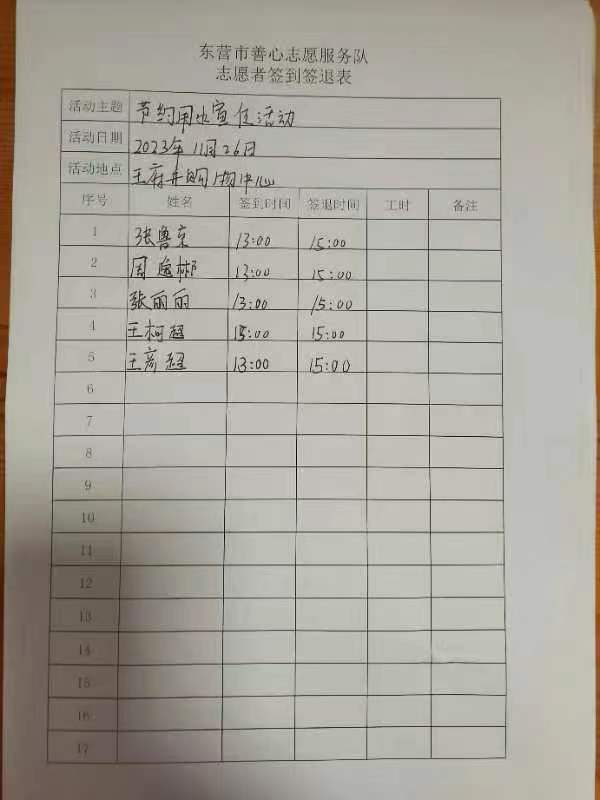 东营市善心志愿服务队
志愿者签到签退表
活动主题 节约用水宣传活动
活动日期 2023年11月26日
活动地点 王府井购物中心
序号 姓名 签到时间 签退时间 工时 备注
1 张鲁京 13:00 15:00
2 周 13:00 15:00
3 张丽丽 13:00 15:00
4 王柯超 15:00 15:00
5 王彦超 13:00 15:00
6
7
8
9
10
11
12
13
14
15
16
17